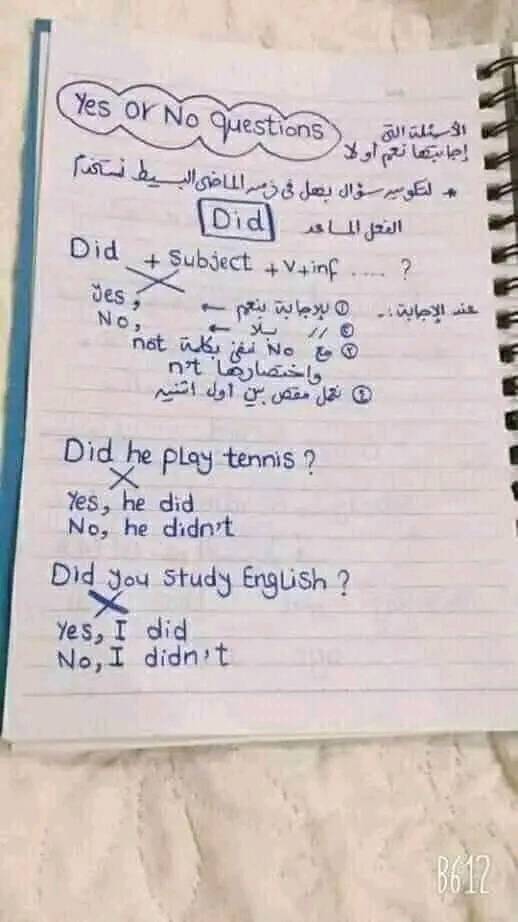 Yes or No questions
الأسئلة التى
إجابتها نعم أو لا
* لتكوين سؤال بهل فى زمن الماضى البسيط نستخدم
الفعل المساعد Did
Did + Subject + v+inf ..... ?
عند الإجابة :. ① للإجابة بنعم ← Yes,
② // بلا ← No,
③ مع No ننفى بكلمة not
واختصارها n't
④ نعمل مقص بين أول اتنين
Did he play tennis ?
Yes, he did
No, he didn't
Did you study English ?
Yes, I did
No, I didn't
B612